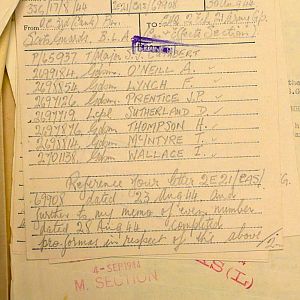 33C/17/8/44
2E21/CAS/69908
30 Aug 44
TO:
Scots Guards, B.L.A.
Effects Section)
P/65937 Major J.J. LAMBERT
2699184. Gdsm. O'NEILL A.
2698854. Gdsm. LYNCH F.
2697126 Gdsm. PRENTICE J.P.
2697719 SUTHERLAND D.
2697876 Gdsm. THOMPSON H.
2698814. Gdsm. McINTYRE T.
2701138. Gdsm. WALLACE I.
Reference Your letter 2E21/CAS/
69908 dated 23 Aug 44 and
further to my memo of even number
dated 28 Aug 44, completed
pro-formas in respect of the above
4-SEP1944
M. SECTION
S(L)